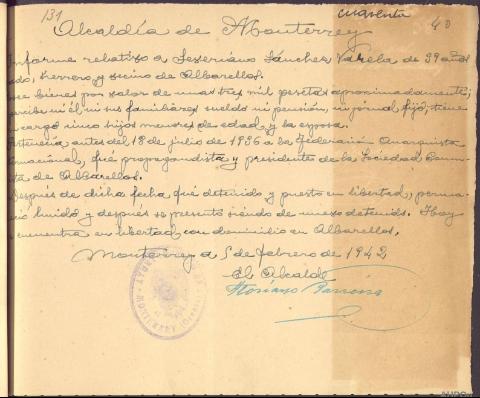 131
cuarenta
40
Alcaldía de Monterrey
Informe relativo a Severiano Sánchez Varela de 39 años
ado, herrero y vecino de Albarellos.
ee bienes por valor de unas tres mil pesetas aproximadamente;
ni él ni sus familiares sueldo ni pensión, ni jornal fijo; tiene
cargo cinco hijos menores de edad y la esposa.
ertenecía antes del 18 de julio de 1936 a la Federación Anarquista
fué propagandista y presidente de la Sociedad
ta de Albarellos.
Después de dicha fecha fué detenido y puesto en libertad, perma
ció huido y después se presentó siendo de nuevo detenido. Hoy
encuentra en libertad con domicilio en Albarellos.
Monterrey a 5 de febrero de 1942
El Alcalde